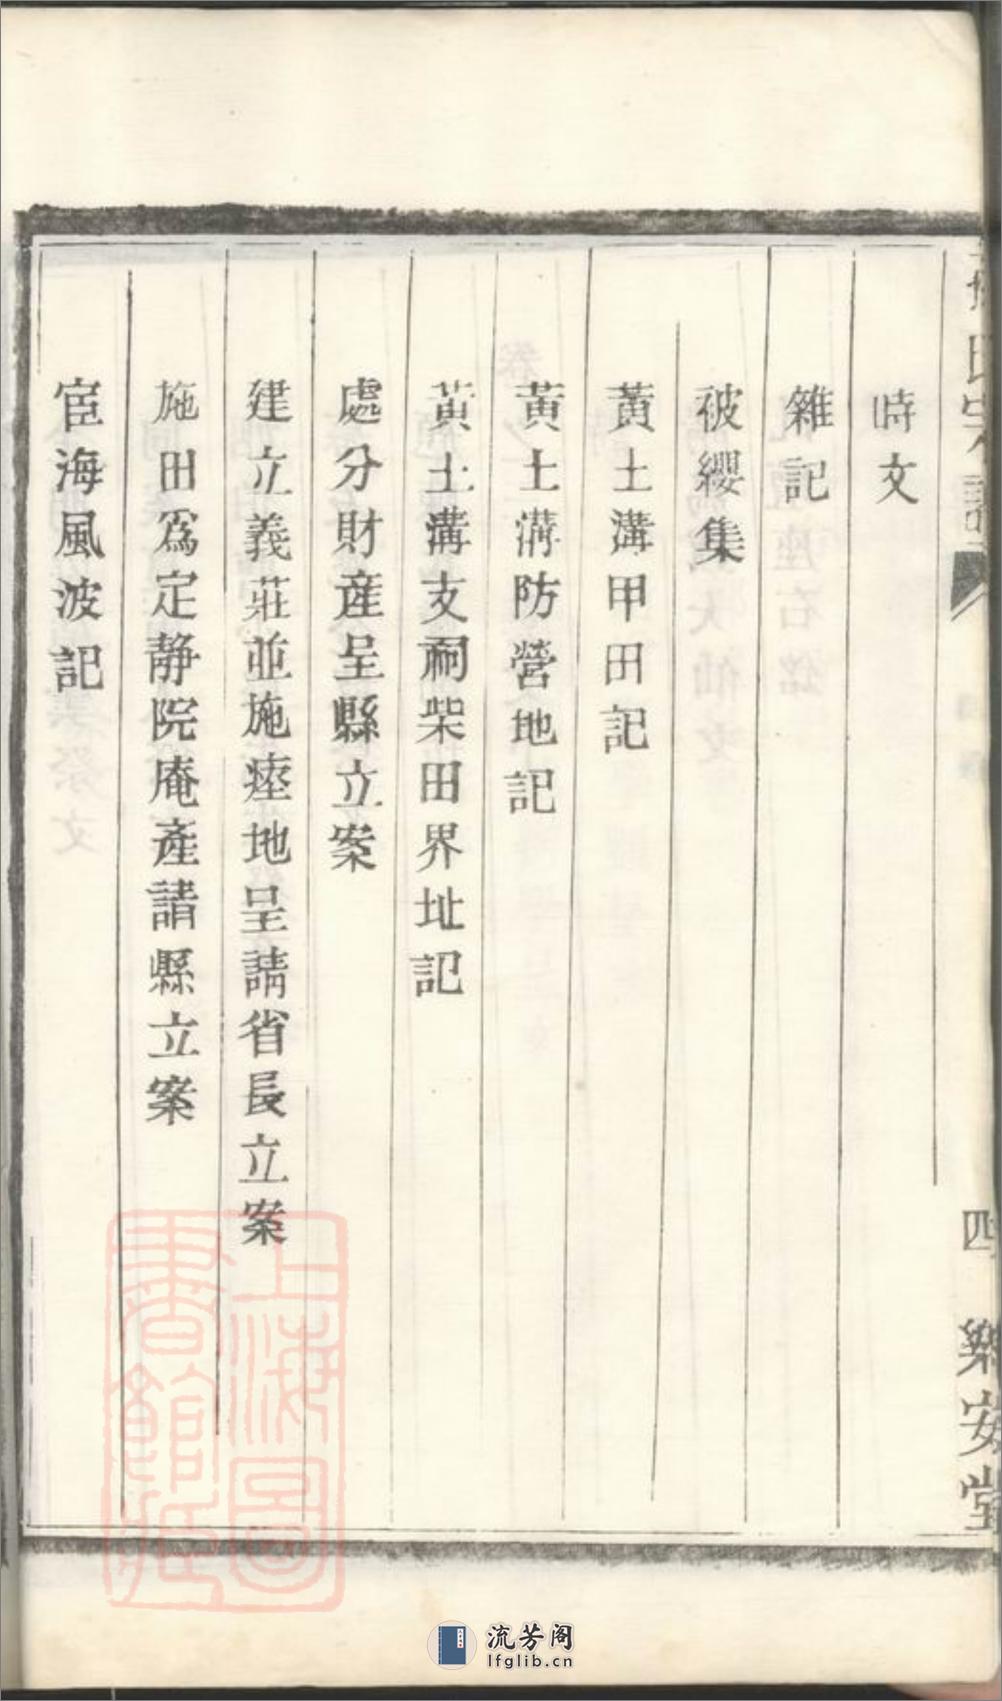 孫氏宗譜
四
樂安堂
時文
雜記
被纓集
黃土溝甲田記
黃土溝防營地記
黃土溝支祠柴田界址記
處分財產呈縣立案
建立義莊並施瘞地呈請省長立案
施田爲定靜院庵產請縣立案
宦海風波記
上海圖書館藏
流芳阁
lfglib.cn